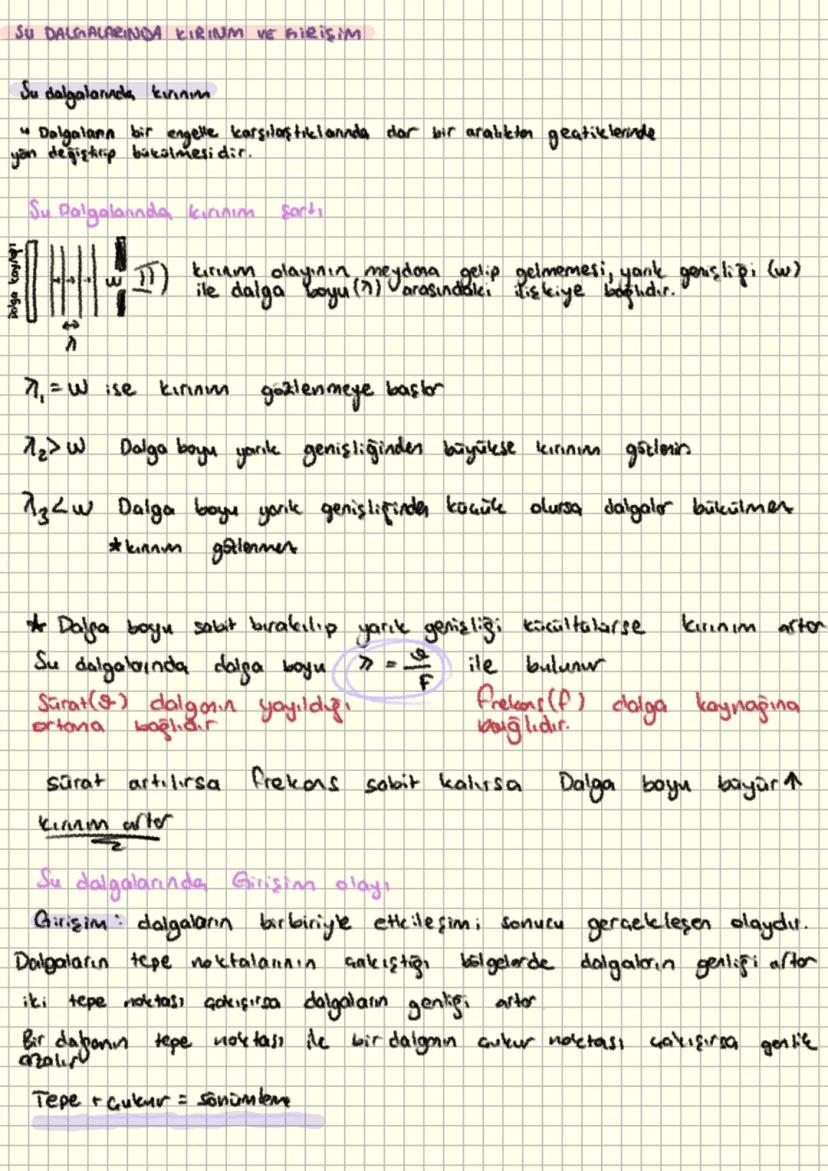 SU DALGALARINDA KIRINIM VE GİRİŞİM
Su dalgalarında kırınım
" Dalgaların bir engelle karşılaştıklarında dar bir aralıktan geçtiklerinde
yön değiştirip bükülmesidir.
Su Dalgalarında kırınım şartı
Dalga kaynağı
w
λ
kırınım olayının meydana gelip gelmemesi, yarık genişliği (w)
ile dalga boyu (λ) arasındaki ilişkiye bağlıdır.
λ₁ = w ise kırınım gözlenmeye başlar
λ₂ > w Dalga boyu yarık genişliğinden büyükse kırınım gözlenir
λ₃ < w Dalga boyu yarık genişliğinden küçük olursa dalgalar bükülmez
*kırınım gözlenmez
* Dalga boyu sabit bırakılıp yarık genişliği küçültülürse kırınım artar
Su dalgalarında dalga boyu λ = ϑ/F ile bulunur
Sürat(ϑ) dalganın yayıldığı
ortama bağlıdır
frekans(f) dalga kaynağına
bağlıdır.
sürat artılırsa frekans sabit kalırsa Dalga boyu büyür ↑
kırınım artar
Su dalgalarında Girişim olayı
Girişim: dalgaların birbiriyle etkileşimi sonucu gerçekleşen olaydır.
Dalgaların tepe noktalarının çakıştığı bölgelerde dalgaların genliği artar
iki tepe noktası çakışırsa dalgaların genliği artar
Bir dalganın tepe noktası ile bir dalganın çukur noktası çakışırsa genlik
azalır
Tepe + çukur = sönümleme